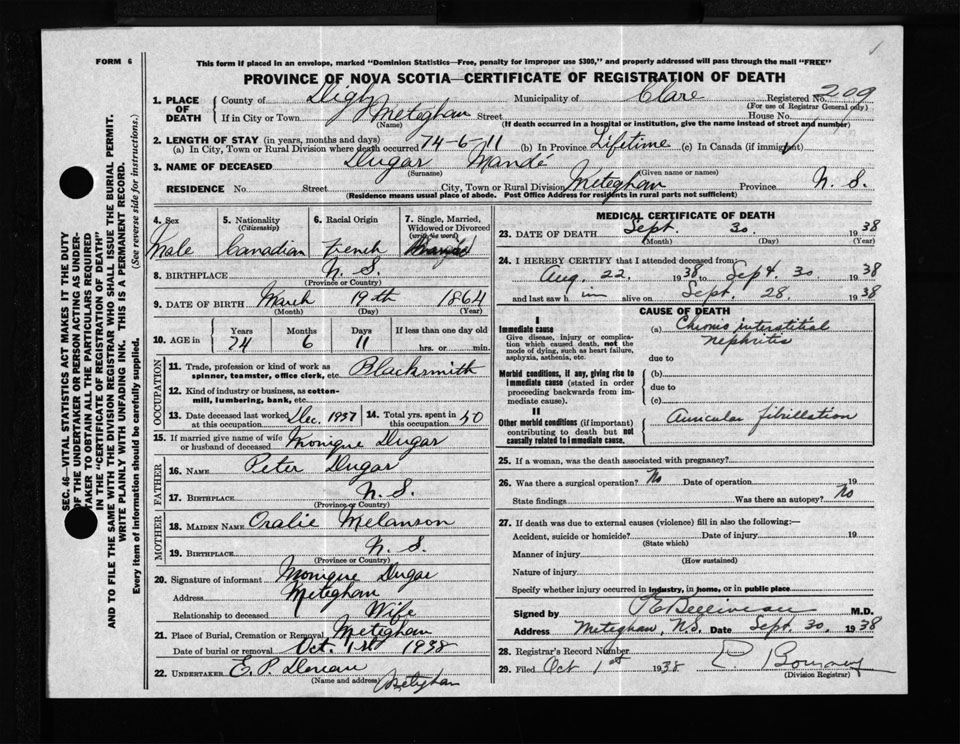 FORM 6
This form if placed in an envelope, marked "Dominion Statistics—Free, penalty for improper use $300," and properly addressed will pass through the mail "FREE"
PROVINCE OF NOVA SCOTIA—CERTIFICATE OF REGISTRATION OF DEATH
1. PLACE OF DEATH
County of Digby Municipality of Clare Registered No. 209
(For use of Registrar General only)
If in City or Town Meteghan Street House No.
(Name) (If death occurred in a hospital or institution, give the name instead of street and number)
2. LENGTH OF STAY (in years, months and days)
(a) In City, Town or Rural Division where death occurred 74-6-11 (b) In Province Lifetime (c) In Canada (if immigrant)
3. NAME OF DECEASED Dugas Mandé
(Surname) (Given name or names)
RESIDENCE No Street City, Town or Rural Division Meteghan Province N. S.
(Residence means usual place of abode. Post Office Address for residents in rural parts not sufficient)
4. Sex Male
5. Nationality (Citizenship) Canadian
6. Racial Origin French
7. Single, Married, Widowed or Divorced (write the word) Married
8. BIRTHPLACE N. S.
(Province or Country)
9. DATE OF BIRTH March 19th 1864
(Month) (Day) (Year)
10. AGE in Years 74 Months 6 Days 11 If less than one day old hrs. or min.
OCCUPATION
11. Trade, profession or kind of work as spinner, teamster, office clerk, etc. Blacksmith
12. Kind of industry or business, as cotton-mill, lumbering, bank, etc.
13. Date deceased last worked at this occupation Dec. 1937 14. Total yrs. spent in this occupation 50
15. If married give name of wife or husband of deceased Monique Dugas
FATHER
16. NAME Peter Dugas
17. BIRTHPLACE N. S.
(Province or Country)
MOTHER
18. MAIDEN NAME Oralie Melanson
19. BIRTHPLACE N. S.
(Province or Country)
20. Signature of informant Monique Dugas
Address Meteghan
Relationship to deceased Wife
21. Place of Burial, Cremation or Removal Meteghan
Date of burial or removal Oct. 1st 1938
22. UNDERTAKER E. P.
(Name and address) Meteghan
MEDICAL CERTIFICATE OF DEATH
23. DATE OF DEATH Sept. 30. 1938
(Month) (Day) (Year)
24. I HEREBY CERTIFY that I attended deceased from:
Aug. 22. 1938 to Sept. 30 1938
and last saw him alive on Sept. 28. 1938
CAUSE OF DEATH
I
Immediate cause
Give disease, injury or complication which caused death, not the mode of dying, such as heart failure, asphyxia, asthenia, etc.
(a) Chronic interstitial nephritis
due to
Morbid conditions, if any, giving rise to immediate cause (stated in order proceeding backwards from immediate cause).
(b)
due to
(c)
II
Other morbid conditions (if important) contributing to death but not causally related to immediate cause.
Auricular fibrillation
25. If a woman, was the death associated with pregnancy?
26. Was there a surgical operation? No Date of operation 19
State findings Was there an autopsy? No
27. If death was due to external causes (violence) fill in also the following:—
Accident, suicide or homicide? Date of injury 19
(State which)
Manner of injury
(How sustained)
Nature of injury
Specify whether injury occurred in industry, in home, or in public place
Signed by P E Belliveau M.D.
Address Meteghan, N.S. Date Sept. 30. 1938
28. Registrar's Record Number
29. Filed Oct 1st 1938
(Division Registrar)
SEC. 46—VITAL STATISTICS ACT MAKES IT THE DUTY
OF THE UNDERTAKER OR PERSON ACTING AS UNDER-
TAKER TO OBTAIN ALL THE PARTICULARS REQUIRED
IN THE "CERTIFICATE OF REGISTRATION OF DEATH"
AND TO FILE THE SAME WITH THE DIVISION REGISTRAR WHO SHALL ISSUE THE BURIAL PERMIT.
WRITE PLAINLY WITH UNFADING INK. THIS IS A PERMANENT RECORD.
Every item of information should be carefully supplied. (See reverse side for instructions.)